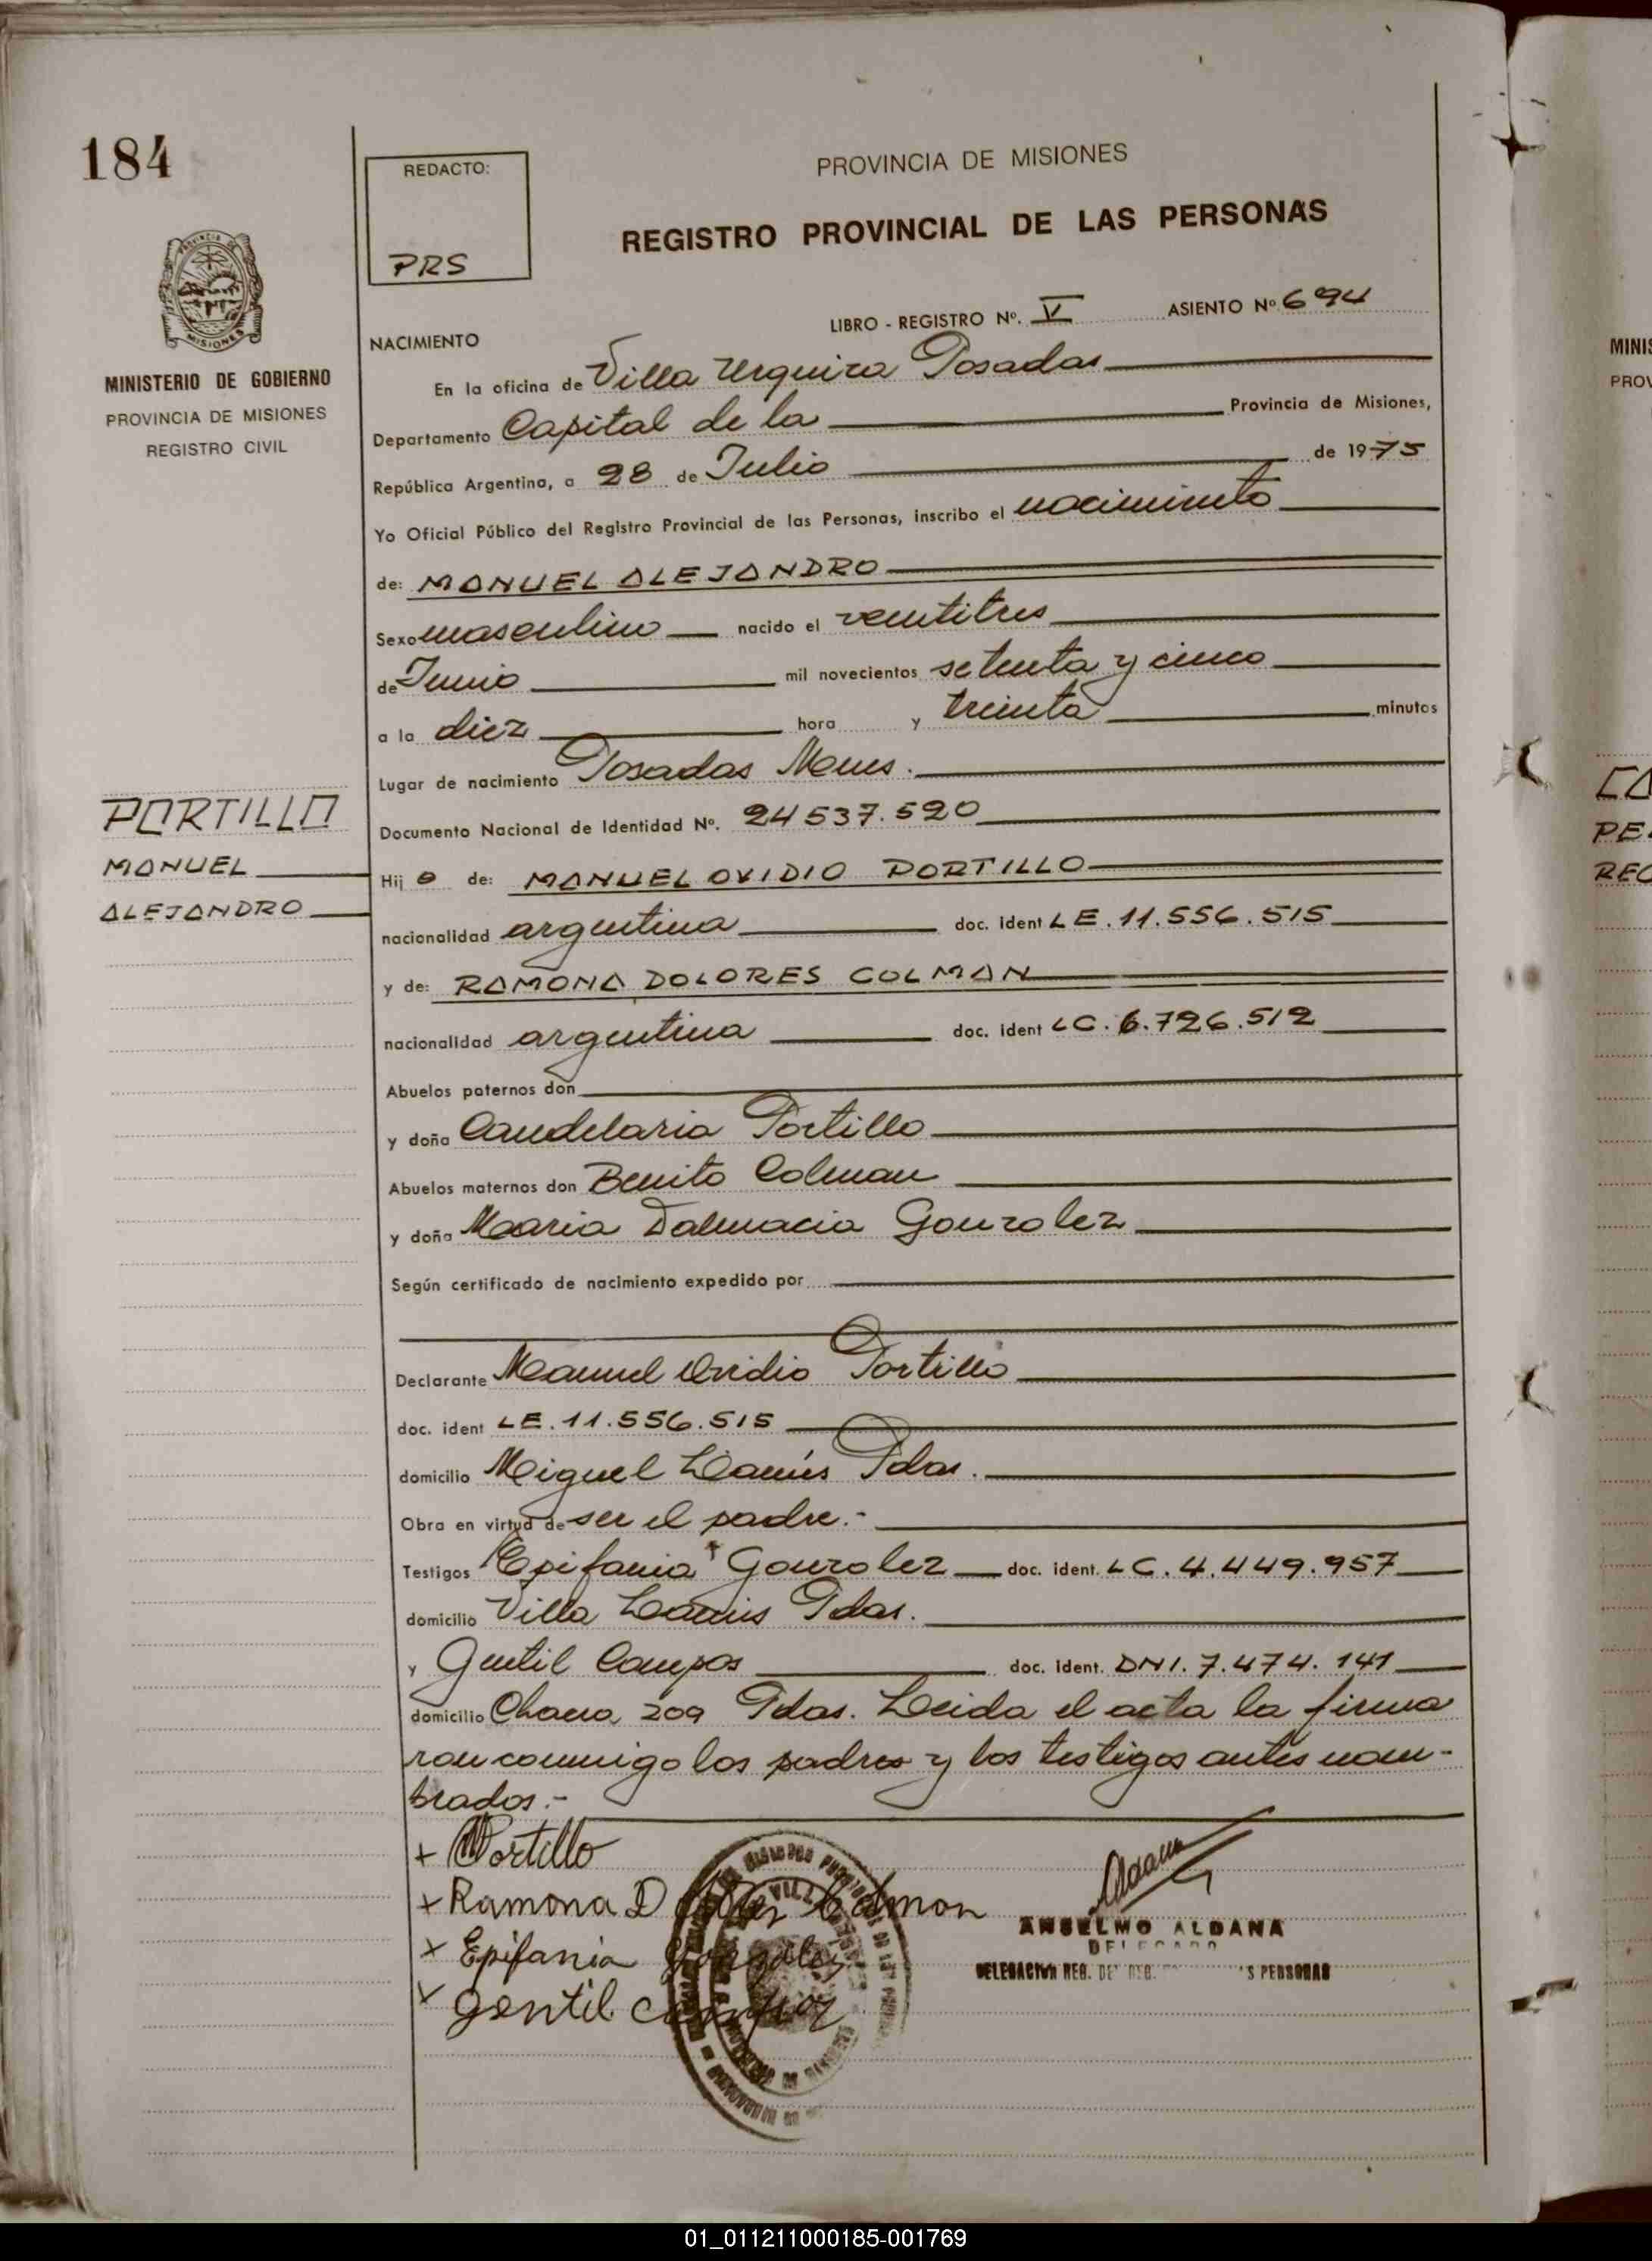 184
REDACTO:
PRS
PROVINCIA DE MISIONES
REGISTRO PROVINCIAL DE LAS PERSONAS
PROVINCIA DE
MISIONES
MINISTERIO DE GOBIERNO
PROVINCIA DE MISIONES
REGISTRO CIVIL
LIBRO - REGISTRO Nº. V ASIENTO Nº 694
NACIMIENTO
En la oficina de Villa Urquiza Posadas
Departamento Capital de la Provincia de Misiones,
República Argentina, a 28 de Julio de 1975
Yo Oficial Público del Registro Provincial de las Personas, inscribo el nacimiento
de: MANUEL ALEJANDRO
Sexo masculino nacido el veintitres
de Junio mil novecientos setenta y cinco
a la diez hora y treinta minutos
Lugar de nacimiento Posadas Mnes.
Documento Nacional de Identidad Nº. 24537.520
PORTILLO
MANUEL
ALEJANDRO
Hij o de: MANUEL OVIDIO PORTILLO
nacionalidad argentina doc. ident LE. 11.556.515
y de: RAMONA DOLORES COLMAN
nacionalidad argentina doc. ident LC. 6.726.512
Abuelos paternos don
y doña Candelaria Portillo
Abuelos maternos don Benito Colman
y doña Maria Dalmacia Gonzalez
Según certificado de nacimiento expedido por
Declarante Manuel Ovidio Portillo
doc. ident LE. 11.556.515
domicilio Miguel Lanús Pdas.
Obra en virtud de ser el padre.-
Testigos Epifania Gonzalez doc. ident. LC. 4.449.957
domicilio Villa Lanús Pdas.
y Gentil Campos doc. ident. DNI. 7.474.141
domicilio Chacra 209 Pdas. Leida el acta la firma
ron conmigo los padres y los testigos antes nom-
brados.-
+ Portillo
+ Ramona D Colman
x Epifania Gonzalez
x Gentil Campos
Aldana
ANSELMO ALDANA
DELEGADO
DELEGACION REG. PERSONAS
MINIS
PROV
CO
PE
REG
01_011211000185-001769